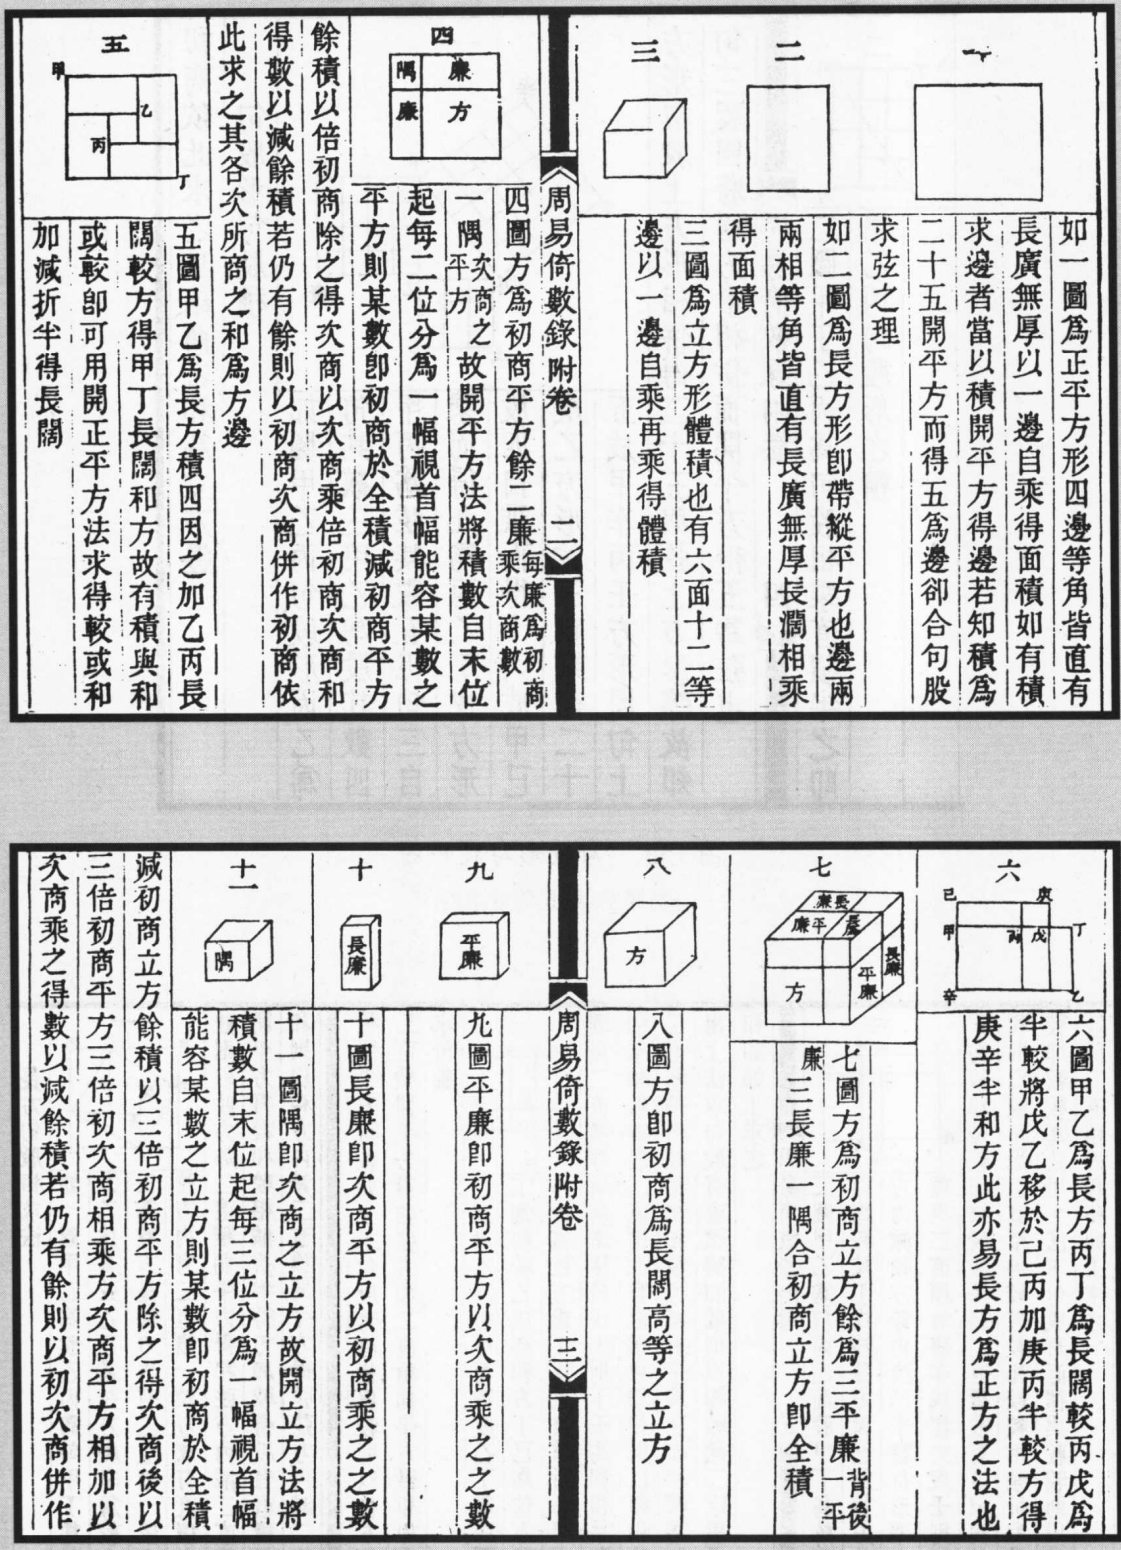 一
如一圖爲正平方形四邊等角皆直有
長廣無厚以一邊自乘得面積如有積
求邊者當以積開平方得邊若知積爲
二十五開平方而得五爲邊卻合句股
求弦之理
二
如二圖爲長方形卽帶縱平方也邊兩
兩相等角皆直有長廣無厚長濶相乘
得面積
三
三圖爲立方形體積也有六面十二等
邊以一邊自乘再乘得體積
周易倚數錄 附卷 二
四
隅 廉
廉 方
四圖方爲初商平方餘二廉每廉爲初商乘次商數
一隅次商之平方故開平方法將積數自末位
起每二位分爲一幅視首幅能容某數之
平方則某數卽初商於全積減初商平方
餘積以倍初商除之得次商以次商乘倍初商次商和
得數以減餘積若仍有餘則以初商次商併作初商依
此求之其各次所商之和爲方邊
五
甲 乙 丙 丁
五圖甲乙爲長方積四因之加乙丙長
闊較方得甲丁長闊和方故有積與和
或較卽可用開正平方法求得較或和
加減折半得長闊
六
己 庚
甲 丙 戊 丁
辛 乙
六圖甲乙爲長方丙丁爲長闊較丙戊爲
半較將戊乙移於己丙加庚丙半較方得
庚辛半和方此亦易長方爲正方之法也
七
長廉
平廉 長廉
方 平廉 長廉
七圖方爲初商立方餘爲三平廉一背後平
廉三長廉一隅合初商立方卽全積
八
方
八圖方卽初商爲長闊高等之立方
周易倚數錄 附卷 三
九
平廉
九圖平廉卽初商平方以次商乘之之數
十
長廉
十圖長廉卽次商平方以初商乘之之數
十一
隅
十一圖隅卽次商之立方故開立方法將
積數自末位起每三位分爲一幅視首幅
能容某數之立方則某數卽初商於全積
減初商立方餘積以三倍初商平方除之得次商後以
三倍初商平方三倍初次商相乘方次商平方相加以
次商乘之得數以減餘積若仍有餘則以初次商併作